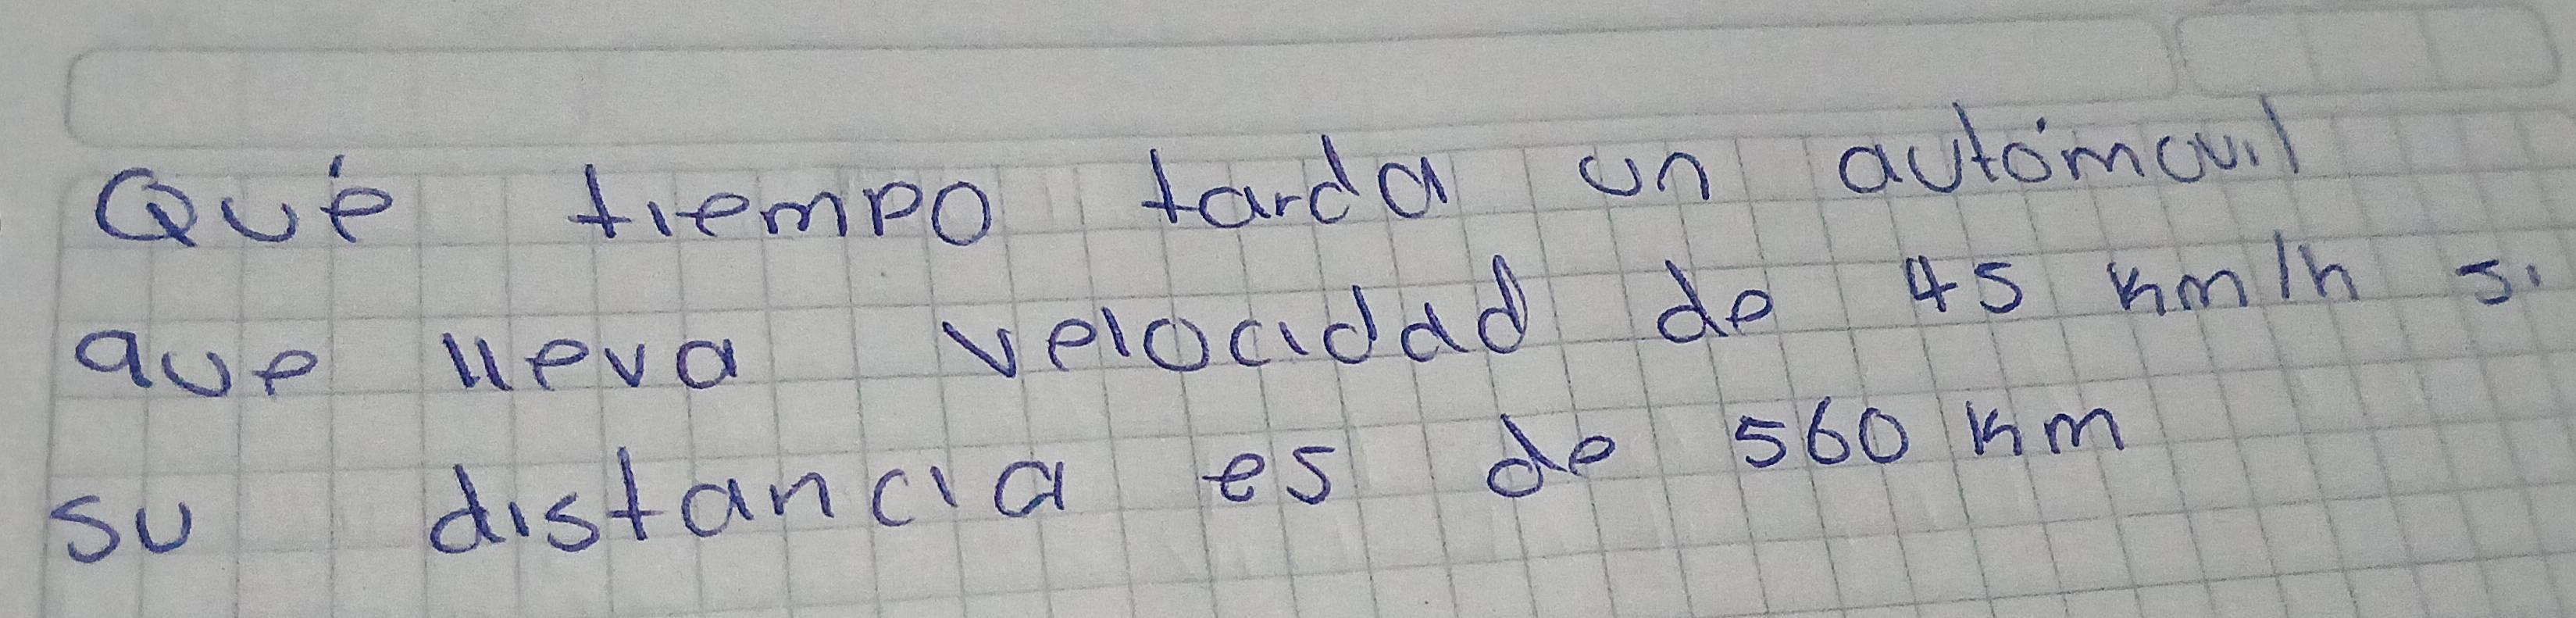 Qué tiempo tarda un autómovil
que lleva velocidad de 45 km/h si
su distancia es de 560 km